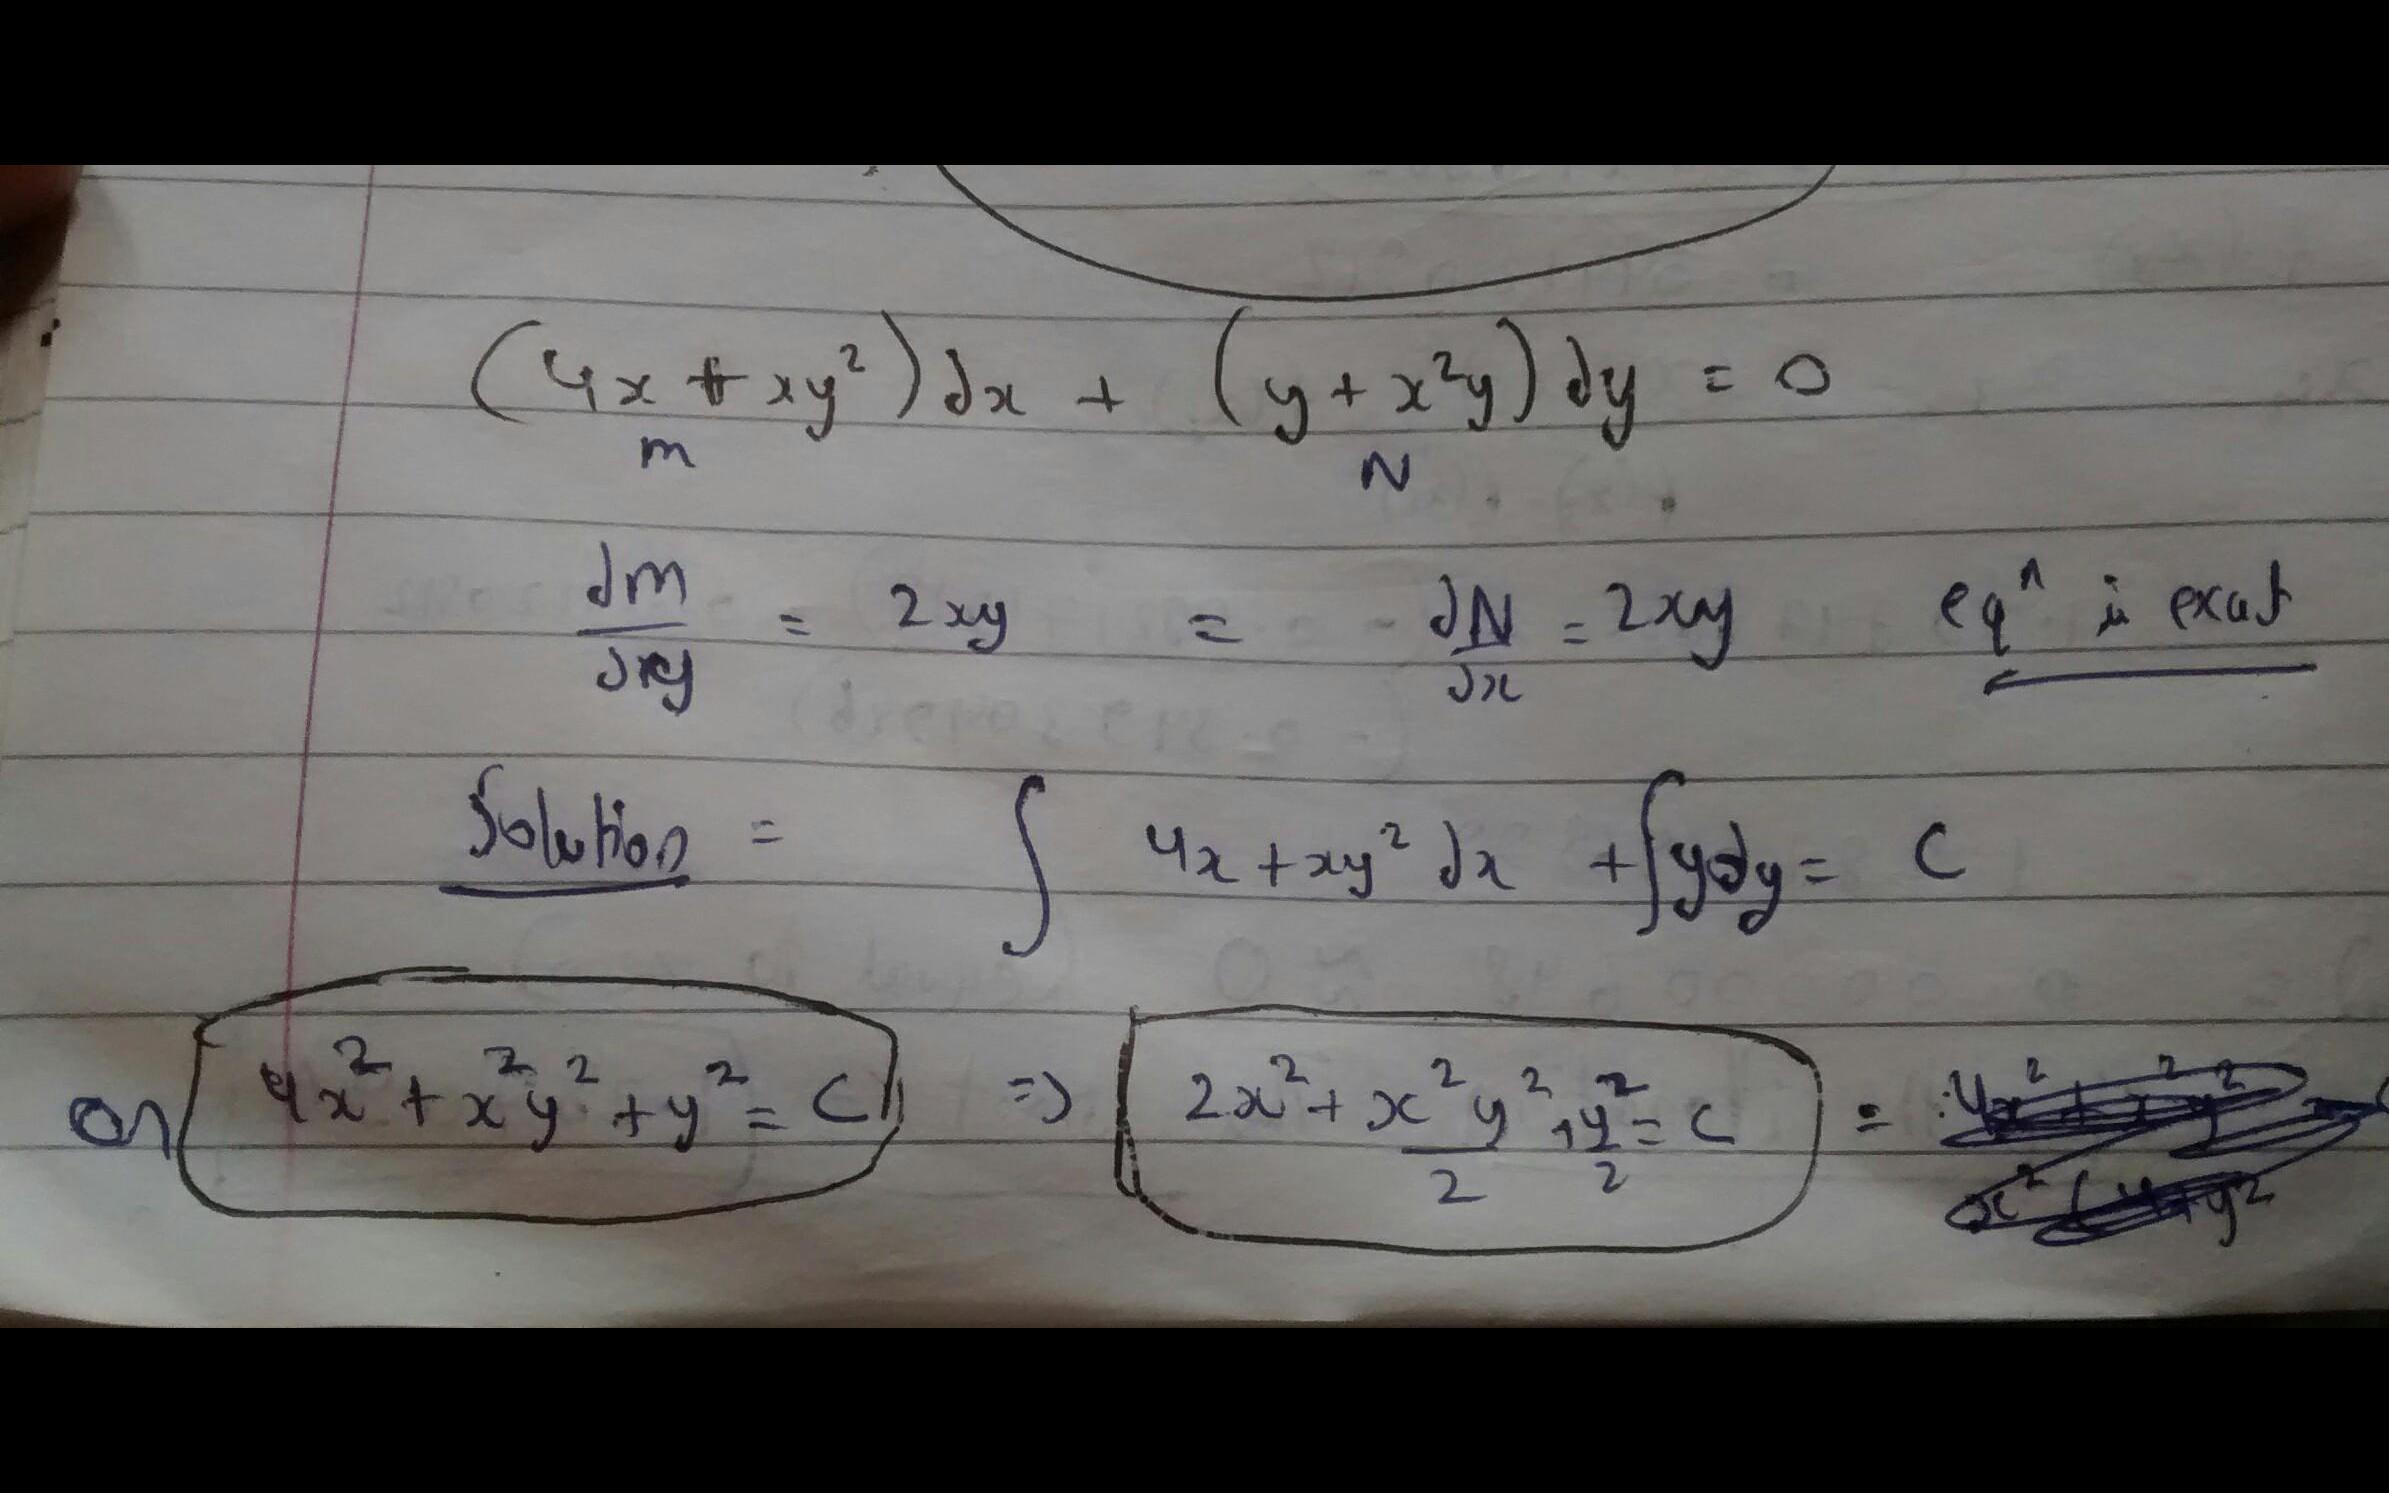 (4x + xy²)dx + (y + x²y)dy = 0
m N
∂m/∂y = 2xy = ∂N/∂x = 2xy eqⁿ is exat
Solution = ∫ 4x + xy² dx + ∫ydy = C
or 4x² + x²y² + y² = C => 2x² + x²y²/2 + y²/2 = C =